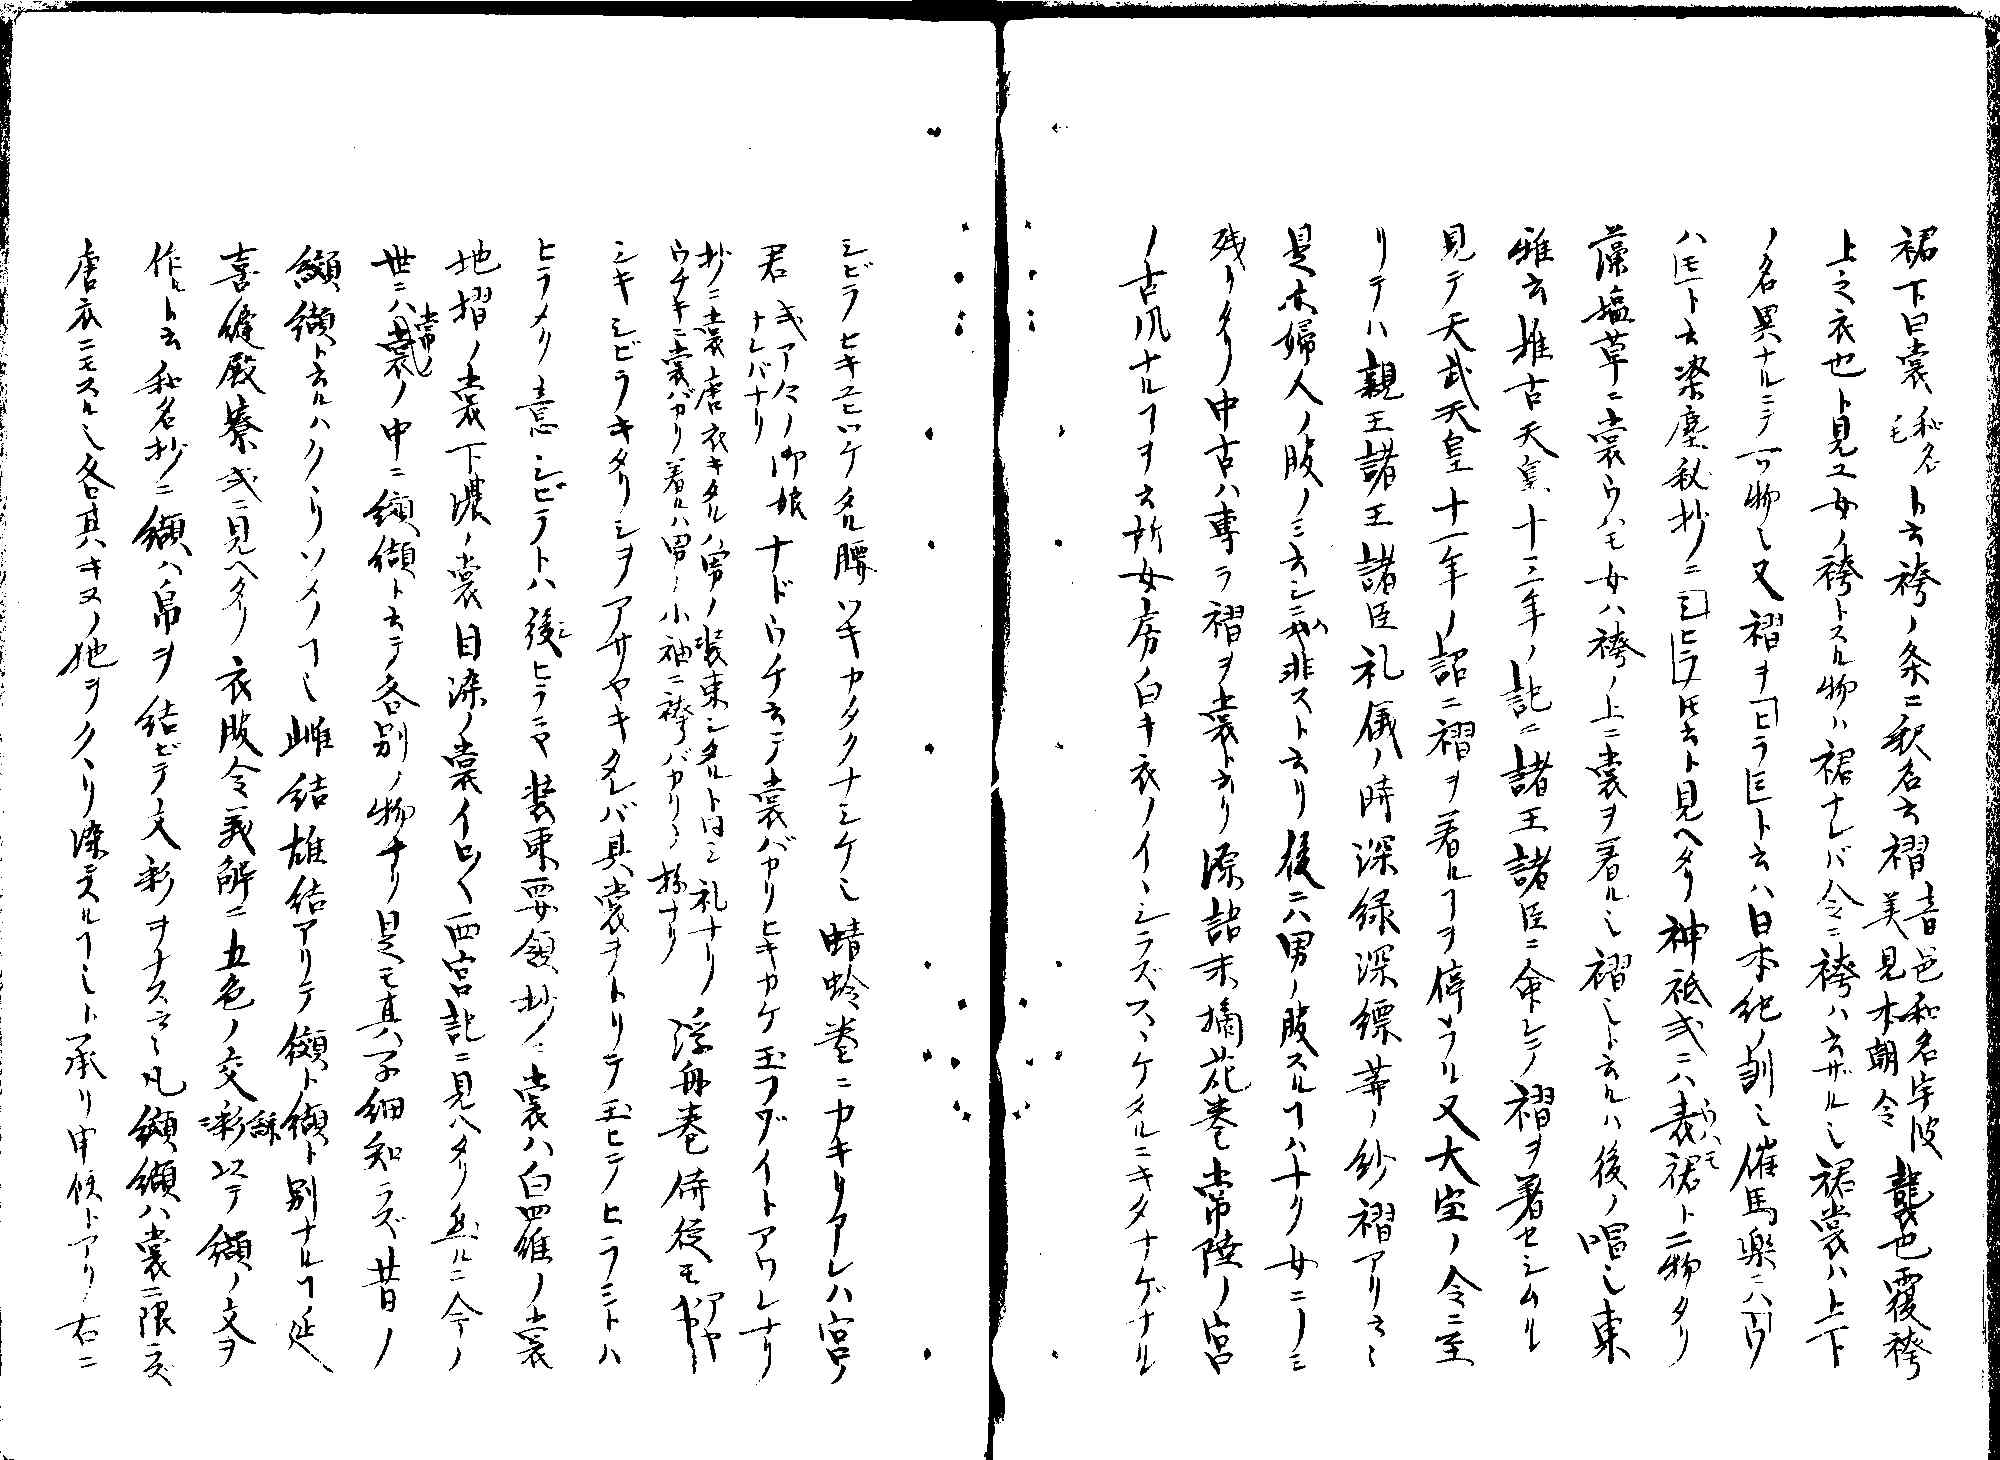 裙下曰裳和名モト云袴ノ条ニ釈名云褶音邑和名宇波美見本朝令襲也覆袴
上之衣也ト見ユ女ノ袴トスル物ハ裙ナレバ今ニ袴ハ云ザルミ裙裳ハ上下
ノ名異ナルニテ一ツ物ミ又褶ヲヒラ巳ト云ハ日本紀ノ訓ミ催馬楽ニハウ
ハモト云梁塵秘抄ノニヒラモト見ヘタリ神祇式ニハ表裙ウハモト二物タリ
藻塩草ニ裳ウハモ女ハ袴ノ上ニ裳ヲ着ルミ褶ミト云ルハ後ノ唱ミ東
雅云推古天皇十三年ノ記ニ諸王諸臣ニ命シテ褶ヲ著セシムル
見テ天武天皇十一年ノ詔ニ褶ヲ着ルヿヲ停ラル又大宝ノ令ニ至
リテハ親王諸王諸臣礼儀ノ時深緑深縹等ノ紗褶アリシミ
是亦婦人ノ服ノミ云シニハ非ストナリ後ニハ男ノ服スルヿハナク女ニノミ
残リタリ中古ハ専ラ褶ヲ裳ト云リ源語末摘花巻常陸ノ宮
ノ古風ナルヿヲ云所女房白キ衣ノイヽシラズスヽケタルニキタナゲナル
シビラヒキユヒツケタル腰ツキカタクナシケミ蜻蛉巻ニカキリアレハ宮ノ
君式ア々ノ御娘ナレバナリナドウチ云テ裳バカリヒキカケ玉フダイトアワレナリ
抄ニ裳唐衣キタルハ男ノ装束シタルト同ミ礼ナリ
ウチキニ裳バカリ着ルハ男ノ小袖ニ袴バカリノ掾ナリ浮舟巻侍従モアヤ
シキシビラキタリシヲアサヤキタレバ其裳ヲトリテ玉ヒテノヒラミトハ
ヒラメク意シビラトハ後ヒラニヤ装束要領抄ノニ裳ハ白四維ノ裳
地摺ノ裳下濃ノ裳目染ノ裳イロ〱西宮記ニ見ヘタリ然ルニ今ノ
世ニハ裳ノ中ニ纐纈ト云テ各別ノ物ナリ是モ其ハ子細知ラズ昔ノ
纐纈ト云ルハクヽリソメノヿミ雌結雄結アリテ纐ト纈ト別ナルヿ延
喜縫殿寮式ニ見ヘタリ衣服令義解ニ五色ノ交彩以テ纈ノ文ヲ
作ルト云和名抄ニ纈ハ帛ヲ結ビテ文彩ヲナスミ凡纐纈ハ裳ニ限ラズ
唐衣ニモスルミ各其ハキヌノ地ヲクヽリ染ニスルヿミト承リ申候トアリ右ニ